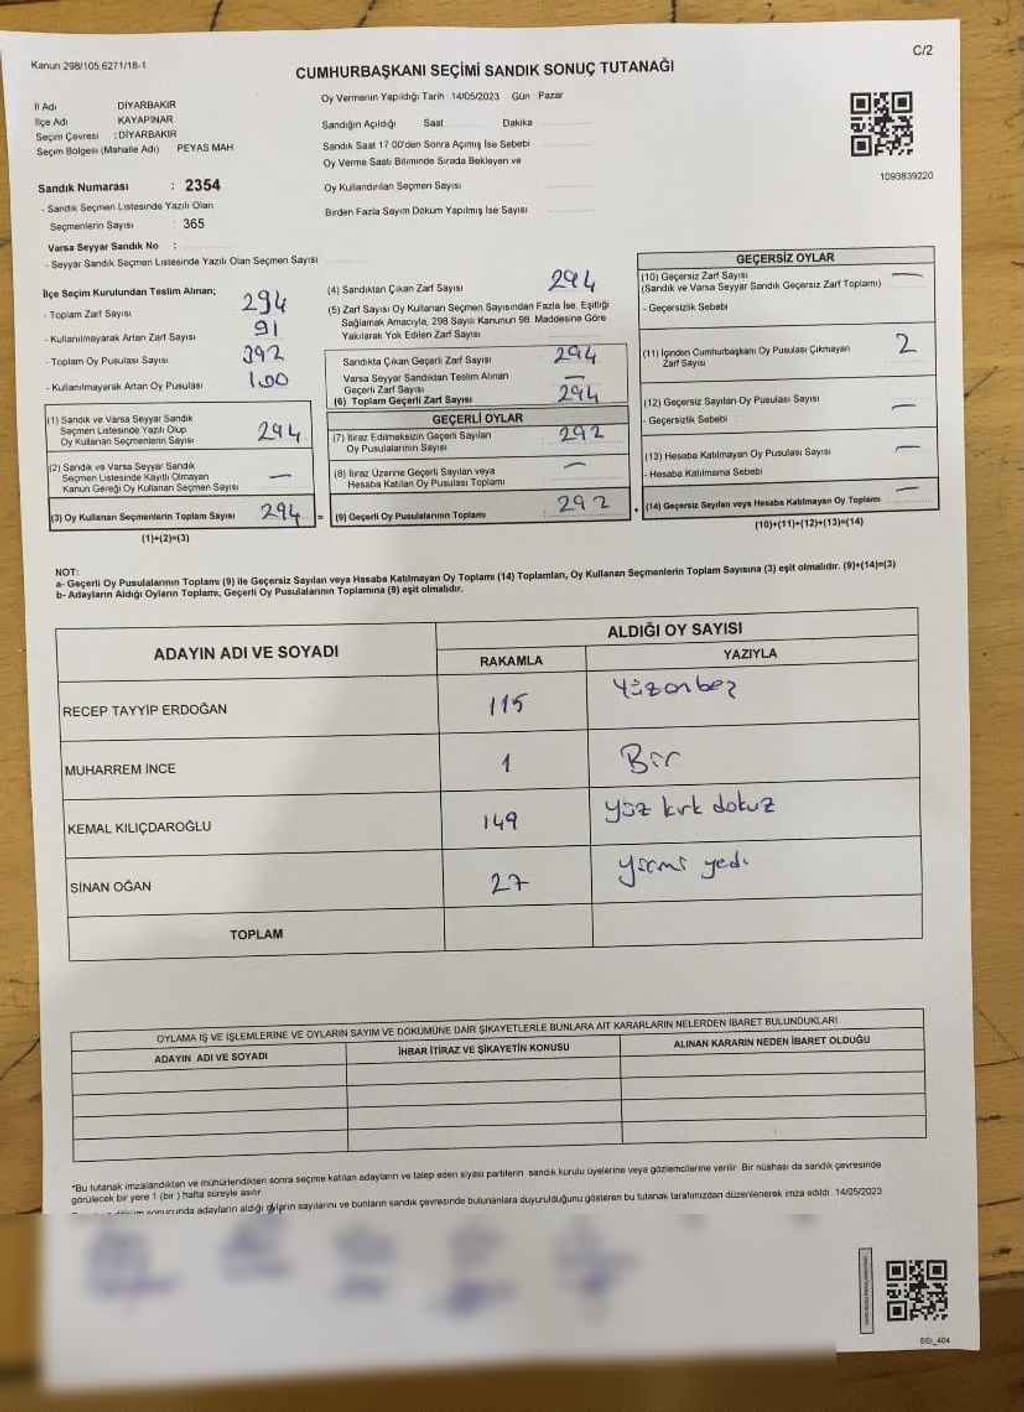 Kanun 298/105 6271/18-1
C/2
CUMHURBAŞKANI SEÇİMİ SANDIK SONUÇ TUTANAĞI
Oy Vermenin Yapıldığı Tarih 14/05/2023 Gün Pazar
İl Adı DİYARBAKIR
İlçe Adı KAYAPINAR
Seçim Çevresi : DİYARBAKIR
Seçim Bölgesi (Mahalle Adı) PEYAS MAH
Sandık Numarası : 2354
- Sandık Seçmen Listesinde Yazılı Olan
Seçmenlerin Sayısı : 365
Varsa Seyyar Sandık No :
- Seyyar Sandık Seçmen Listesinde Yazılı Olan Seçmen Sayısı
Sandığın Açıldığı Saat Dakika
Sandık Saat 17 00'den Sonra Açımış İse Sebebi
Oy Verme Saati Bitiminde Sırada Bekleyen ve
Oy Kullandırılan Seçmen Sayısı
Birden Fazla Sayım Döküm Yapılmış İse Sayısı
1093839220
İlçe Seçim Kurulundan Teslim Alınan;
- Toplam Zarf Sayısı 294
- Kullanılmayarak Artan Zarf Sayısı 91
- Toplam Oy Pusulası Sayısı 392
- Kullanılmayarak Artan Oy Pusulası 100
(1) Sandık ve Varsa Seyyar Sandık
Seçmen Listesinde Yazılı Olup
Oy Kullanan Seçmenlerin Sayısı 294
(2) Sandık ve Varsa Seyyar Sandık
Seçmen Listesinde Kayıtlı Olmayan
Kanun Gereği Oy Kullanan Seçmen Sayısı —
(3) Oy Kullanan Seçmenlerin Toplam Sayısı 294 =
(1)+(2)=(3)
(4) Sandıktan Çıkan Zarf Sayısı 294
(5) Zarf Sayısı Oy Kullanan Seçmen Sayısından Fazla İse, Eşitliği
Sağlamak Amacıyla, 298 Sayılı Kanunun 98. Maddesine Göre
Yakılarak Yok Edilen Zarf Sayısı
Sandıkta Çıkan Geçerli Zarf Sayısı 294
Varsa Seyyar Sandıktan Teslim Alınan
Geçerli Zarf Sayısı —
(6) Toplam Geçerli Zarf Sayısı 294
GEÇERLİ OYLAR
(7) İtiraz Edilmeksizin Geçerli Sayılan
Oy Pusulalarının Sayısı 292
(8) İtiraz Üzerine Geçerli Sayılan veya
Hesaba Katılan Oy Pusulası Toplamı —
(9) Geçerli Oy Pusulalarının Toplamı : 292 +
GEÇERSİZ OYLAR
(10) Geçersiz Zarf Sayısı —
(Sandık ve Varsa Seyyar Sandık Geçersiz Zarf Toplamı)
- Geçersizlik Sebebi
(11) İçinden Cumhurbaşkanı Oy Pusulası Çıkmayan
Zarf Sayısı 2
(12) Geçersiz Sayılan Oy Pusulası Sayısı —
- Geçersizlik Sebebi
(13) Hesaba Katılmayan Oy Pusulası Sayısı —
- Hesaba Katılmama Sebebi
(14) Geçersiz Sayılan veya Hesaba Katılmayan Oy Toplamı —
(10)+(11)+(12)+(13)=(14)
NOT:
a- Geçerli Oy Pusulalarının Toplamı (9) ile Geçersiz Sayılan veya Hesaba Katılmayan Oy Toplamı (14) Toplamları, Oy Kullanan Seçmenlerin Toplam Sayısına (3) eşit olmalıdır. (9)+(14)=(3)
b- Adayların Aldığı Oyların Toplamı, Geçerli Oy Pusulalarının Toplamına (9) eşit olmalıdır.
ADAYIN ADI VE SOYADI
ALDIĞI OY SAYISI
RAKAMLA YAZIYLA
RECEP TAYYİP ERDOĞAN 115 Yüzonbeş
MUHARREM İNCE 1 Bir
KEMAL KILIÇDAROĞLU 149 yüz kırk dokuz
SİNAN OĞAN 27 yirmi yedi
TOPLAM
OYLAMA İŞ VE İŞLEMLERİNE VE OYLARIN SAYIM VE DÖKÜMÜNE DAİR ŞİKAYETLERLE BUNLARA AİT KARARLARIN NELERDEN İBARET BULUNDUKLARI
ADAYIN ADI VE SOYADI İHBAR İTİRAZ VE ŞİKAYETİN KONUSU ALINAN KARARIN NEDEN İBARET OLDUĞU
*Bu tutanak imzalandıktan ve mühürlendikten sonra seçime katılan adayların ve talep eden siyasi partilerin sandık kurulu üyelerine veya gözlemcilerine verilir. Bir nüshası da sandık çevresinde
görülecek bir yere 1 (bir) hafta süreyle asılır.
sonucunda adayların aldığı oyların sayılarını ve bunların sandık çevresinde bulunanlara duyurulduğunu gösteren bu tutanak tarafımızdan düzenlenerek imza edildi. 14/05/2023